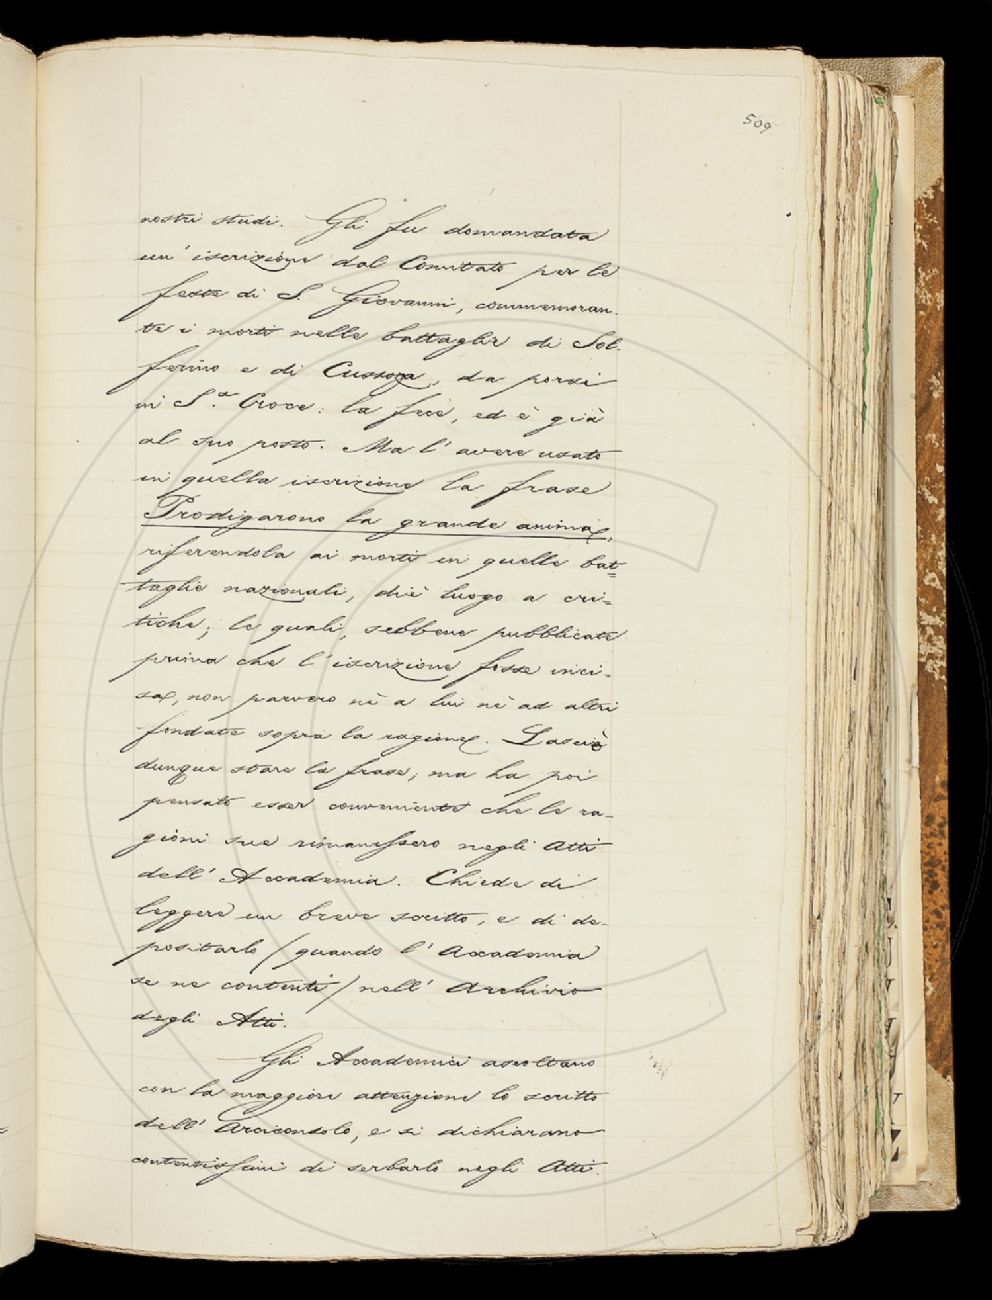 509
nostri studi. Gli fu domandata
un' iscrizione dal Comitato per le
feste di S. Giovanni, commemoran-
te i morti nelle battaglie di Sol-
ferino e di Custoza, da porsi
in S.a Croce: la fece, ed è già
al suo posto. Ma l' avere usato
in quella iscrizione la frase
Prodigarono la grande anima,
riferendola ai morti in quelle bat=
taglie nazionali, diè luogo a cri=
tiche; le quali, sebbene pubblicate
prima che l' iscrizione fosse inci-
sa, non parvero nè a lui nè ad altri
fondate sopra la ragione. Lasciò
dunque stare la frase; ma ha poi
pensato esser conveniente che le ra-
gioni sue rimanessero negli Atti
dell' Accademia. Chiede di
leggere un breve scritto, e di de-
positarlo (quando l' Accademia
se ne contenti) nell' Archivio
degli Atti.
Gli Accademici ascoltano
con la maggiore attenzione lo scritto
dell' Arciconsolo, e si dichiarano
contentissimi di serbarlo negli Atti.